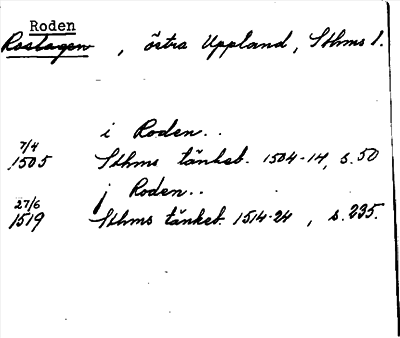 Roden
Roslagen, östra Uppland, Sthms l.
i Roden..
7/4
1505 Sthms tänkeb. 1504-14, s. 50
j Roden..
27/6
1519 Sthms tänkeb. 1514-24, s. 235.